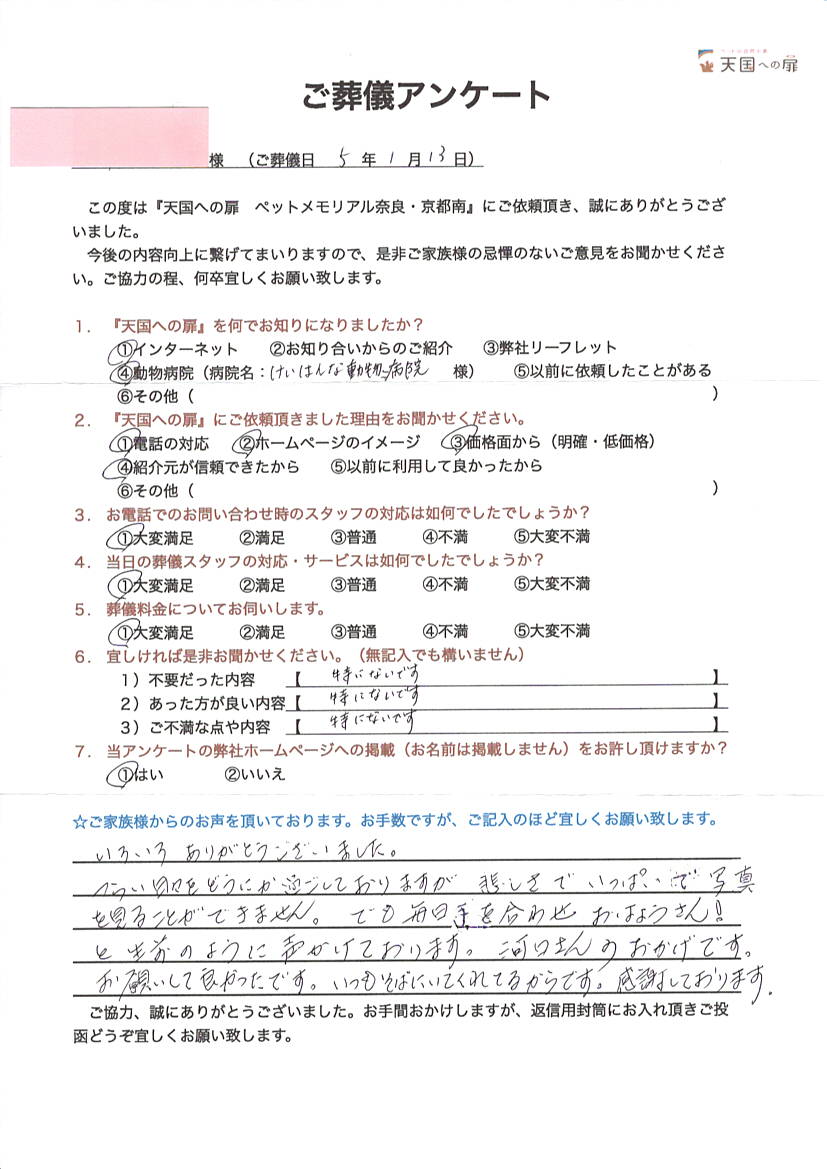 天国への扉
ご葬儀アンケート
様 （ご葬儀日 5 年 1 月 13 日）
この度は『天国への扉 ペットメモリアル奈良・京都南』にご依頼頂き、誠にありがとうござ
いました。
今後の内容向上に繋げてまいりますので、是非ご家族様の忌憚のないご意見をお聞かせくださ
い。ご協力の程、何卒宜しくお願い致します。
1． 『天国への扉』を何でお知りになりましたか？
①インターネット ②お知り合いからのご紹介 ③弊社リーフレット
④動物病院（病院名：けいはんな動物病院 様） ⑤以前に依頼したことがある
⑥その他（ ）
2． 『天国への扉』にご依頼頂きました理由をお聞かせください。
①電話の対応 ②ホームページのイメージ ③価格面から（明確・低価格）
④紹介元が信頼できたから ⑤以前に利用して良かったから
⑥その他（ ）
3． お電話でのお問い合わせ時のスタッフの対応は如何でしたでしょうか？
①大変満足 ②満足 ③普通 ④不満 ⑤大変不満
4． 当日の葬儀スタッフの対応・サービスは如何でしたでしょうか？
①大変満足 ②満足 ③普通 ④不満 ⑤大変不満
5． 葬儀料金についてお伺いします。
①大変満足 ②満足 ③普通 ④不満 ⑤大変不満
6． 宜しければ是非お聞かせください。（無記入でも構いません）
1）不要だった内容 【 特にないです 】
2）あった方が良い内容【 特にないです 】
3）ご不満な点や内容 【 特にないです 】
7． 当アンケートの弊社ホームページへの掲載（お名前は掲載しません）をお許し頂けますか？
①はい ②いいえ
☆ご家族様からのお声を頂いております。お手数ですが、ご記入のほど宜しくお願い致します。
いろいろ ありがとうございました。
つらい日々をどうにか過ごしておりますが 悲しさで いっぱいで 写真
を見ることができません。 でも毎日手を合わせ おはようさん！
と 生前のように 声かけております。 河口さんのおかげです。
お願いして良かったです。いつもそばにいてくれてるからです。感謝しております.
ご協力、誠にありがとうございました。お手間おかけしますが、返信用封筒にお入れ頂きご投
函どうぞ宜しくお願い致します。